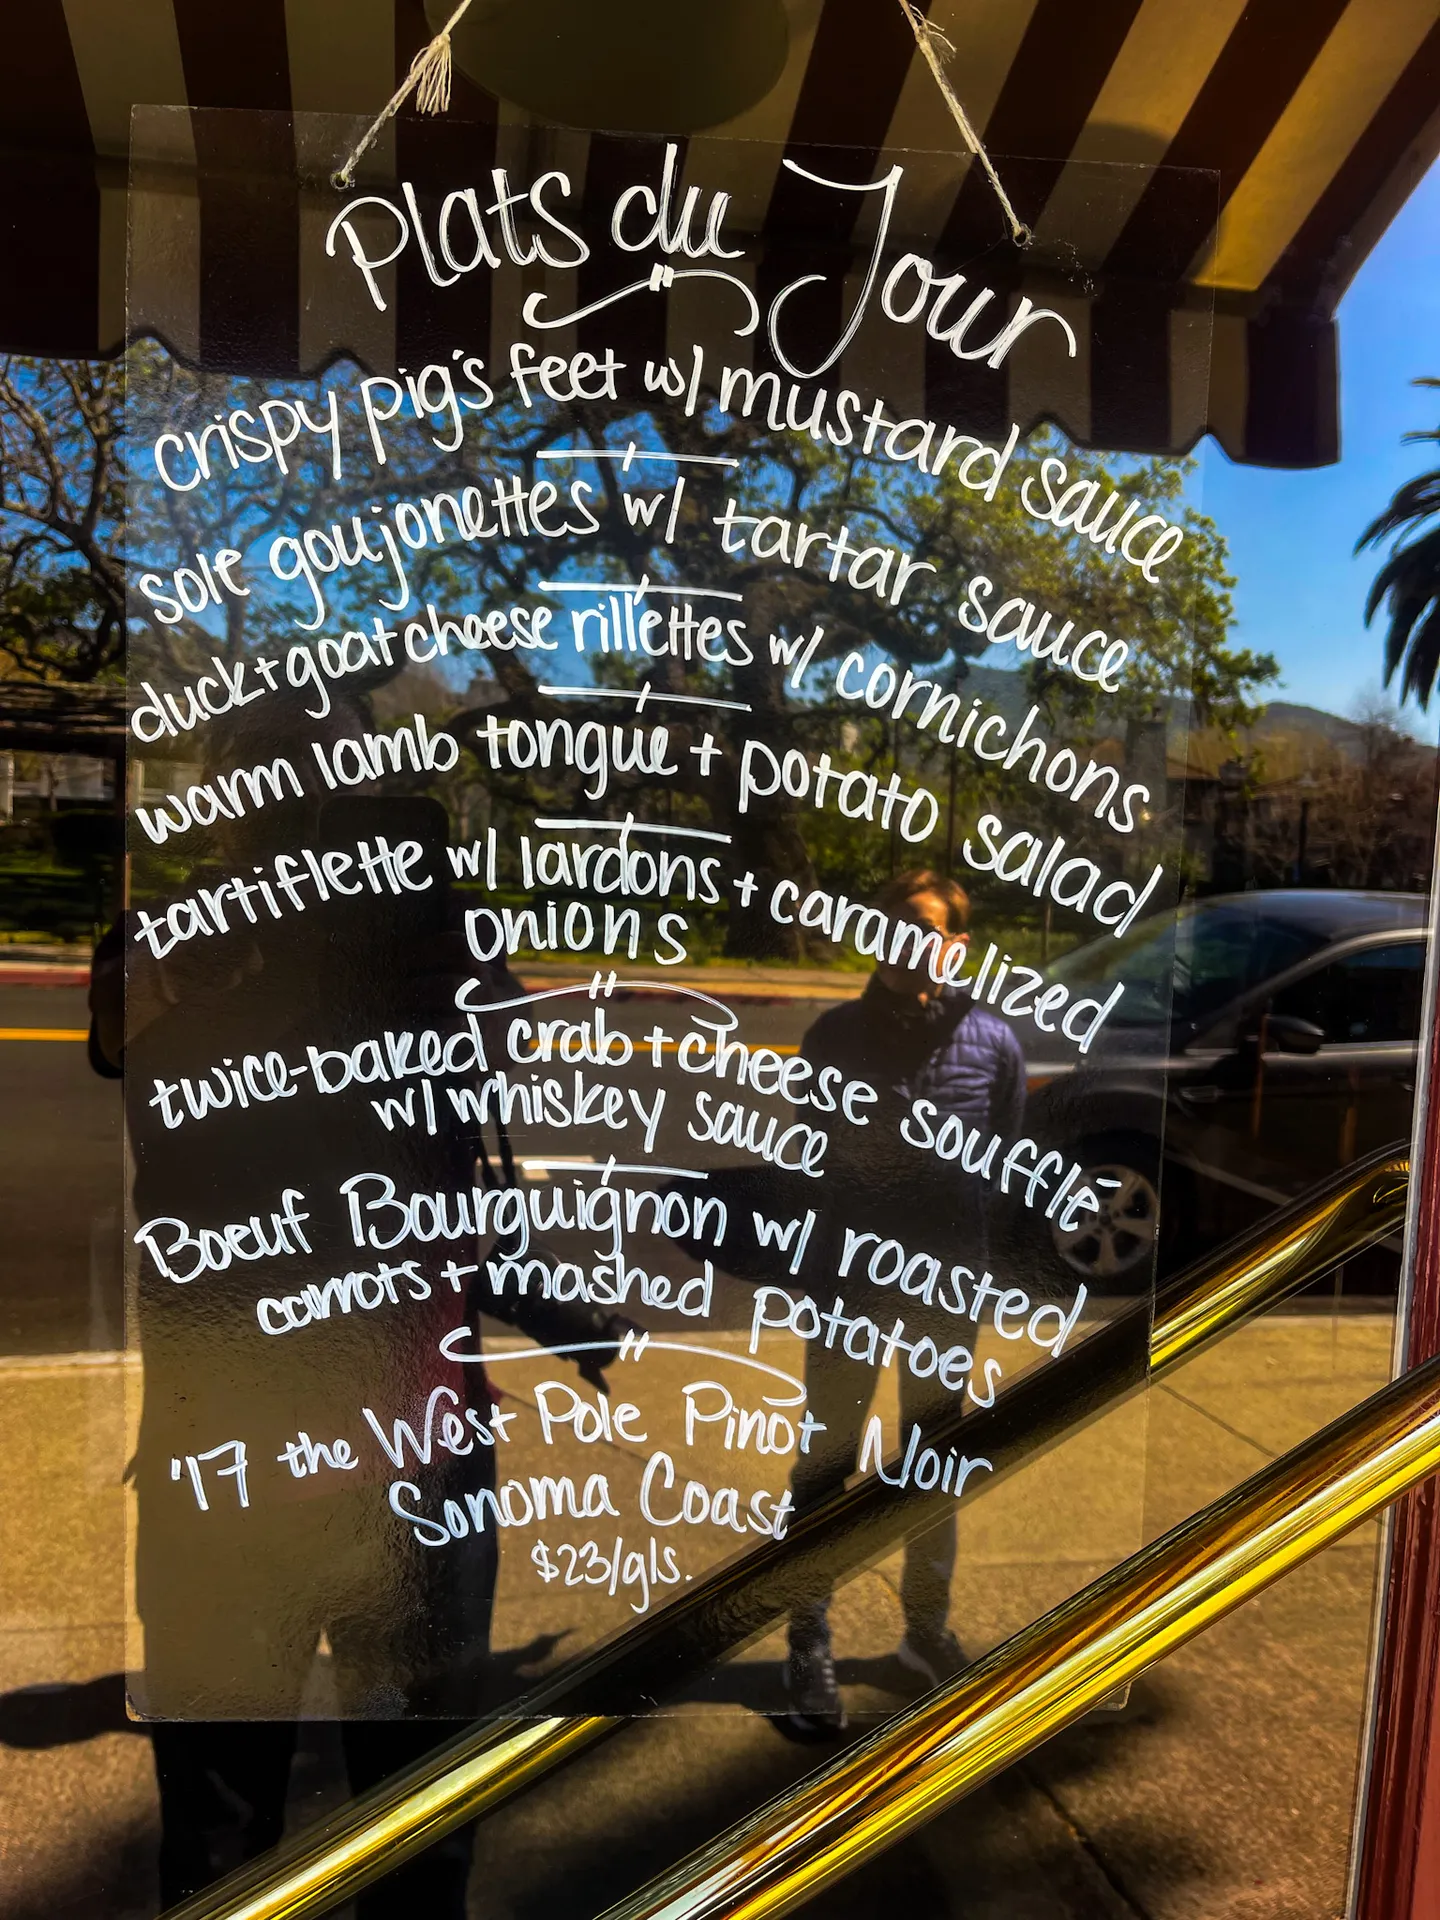 Plats du Jour
crispy pig's feet w/ mustard sauce
sole goujonettes w/ tartar sauce
duck + goat cheese rillettes w/ cornichons
warm lamb tongue + potato salad
tartiflette w/ lardons + caramelized
onions
twice-baked crab + cheese soufflé
w/ whiskey sauce
Boeuf Bourguignon w/ roasted
carrots + mashed potatoes
'17 the West Pole Pinot Noir
Sonoma Coast
$23/gls.